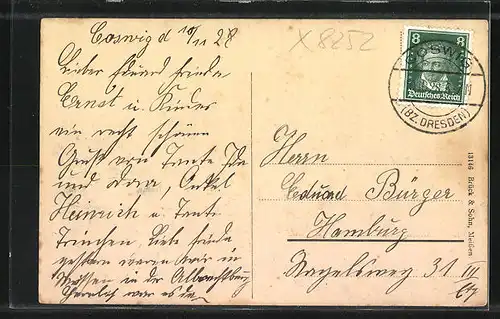 Coswig d 10/11 28
Lieber Eduard Frieda
Ernst u. Kinder
ein recht schönen
Gruß von Tante Ida
und Onkel
Heinrich u Tante
Trinchen, Liebe Frieda
gestern waren wir in
Meissen in der Albrechtsburg
herrlich war es da
X8252
8 8
Deutsches Reich
COSWIG
(BZ. DRESDEN)
Herrn
Eduard Bürger
Hamburg
Nagelsweg 31 III
Etg
13146 Brück & Sohn, Meißen